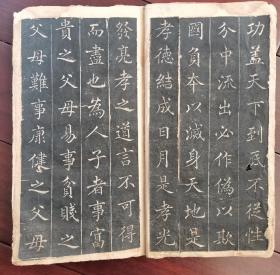 功蓋天下到底不從性
分中流出必作偽以欺
國負本以滅身天地是
孝德結成日月是孝光
發亮孝之道言不可得
而盡也為人子者事富
貴之父母易事貧賤之
父母難事康健之父母